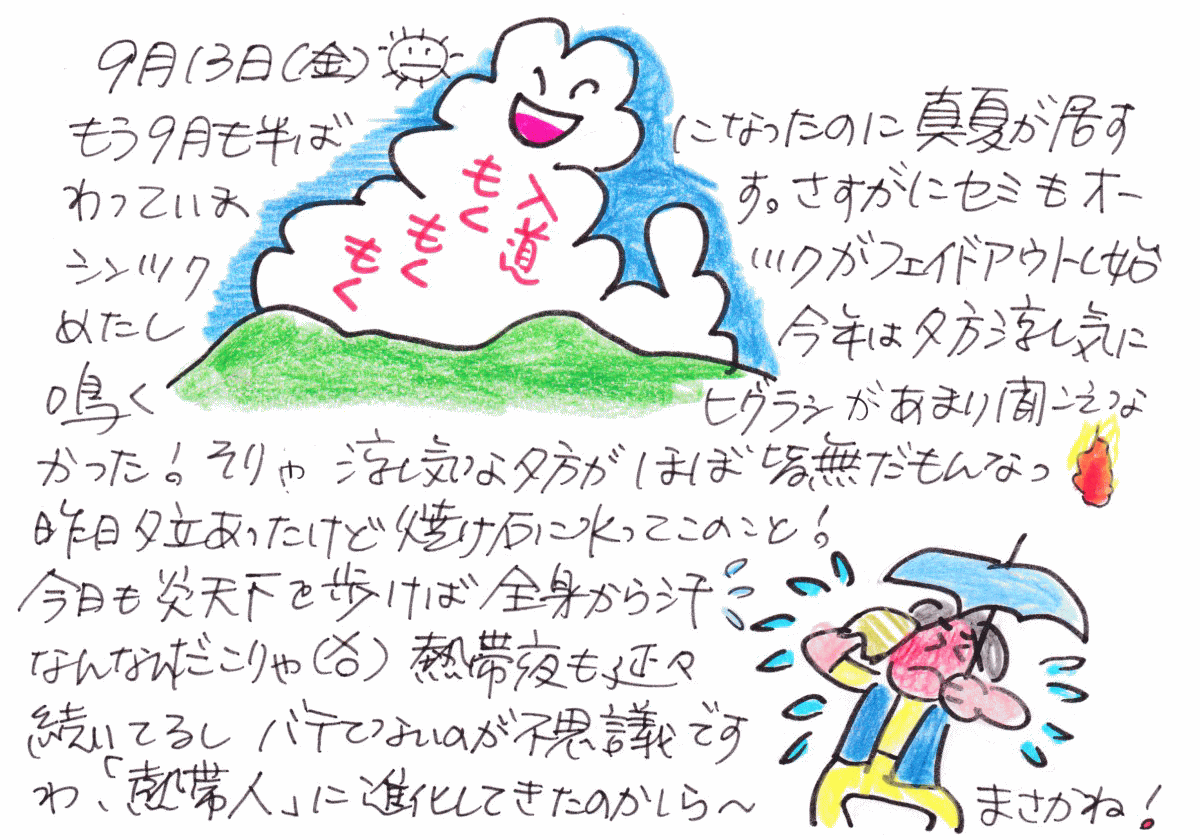 9月13日(金)
もう9月も半ばになったのに真夏が居す
わっています。さすがにセミもオー
シンツクツクがフェイドアウトし始
めたし今年は夕方涼し気に
鳴くヒグラシがあまり聞こえな
かった!そりゃ涼し気な夕方がほぼ皆無だもんなっ
昨日夕立あったけど焼け石に水ってこのこと!
今日も炎天下を歩けば全身から汗
なんなんだこりゃ 熱帯夜も延々
続いてるし バテてないのが不思議です
わ、「熱帯人」に進化してきたのかしら〜 まさかね!
入道
もく
もく
もく